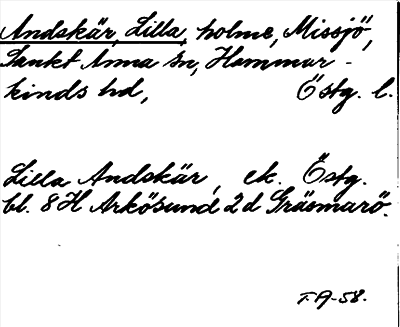 Andskär, Lilla, holme, Missjö,
Sankt Anna sn, Hammar-
kinds hd, Östg. l.
Lilla Andskär, ek. Östg.
bl. 8 H Arkösund 2 d Gräsmarö.
T.A-58.